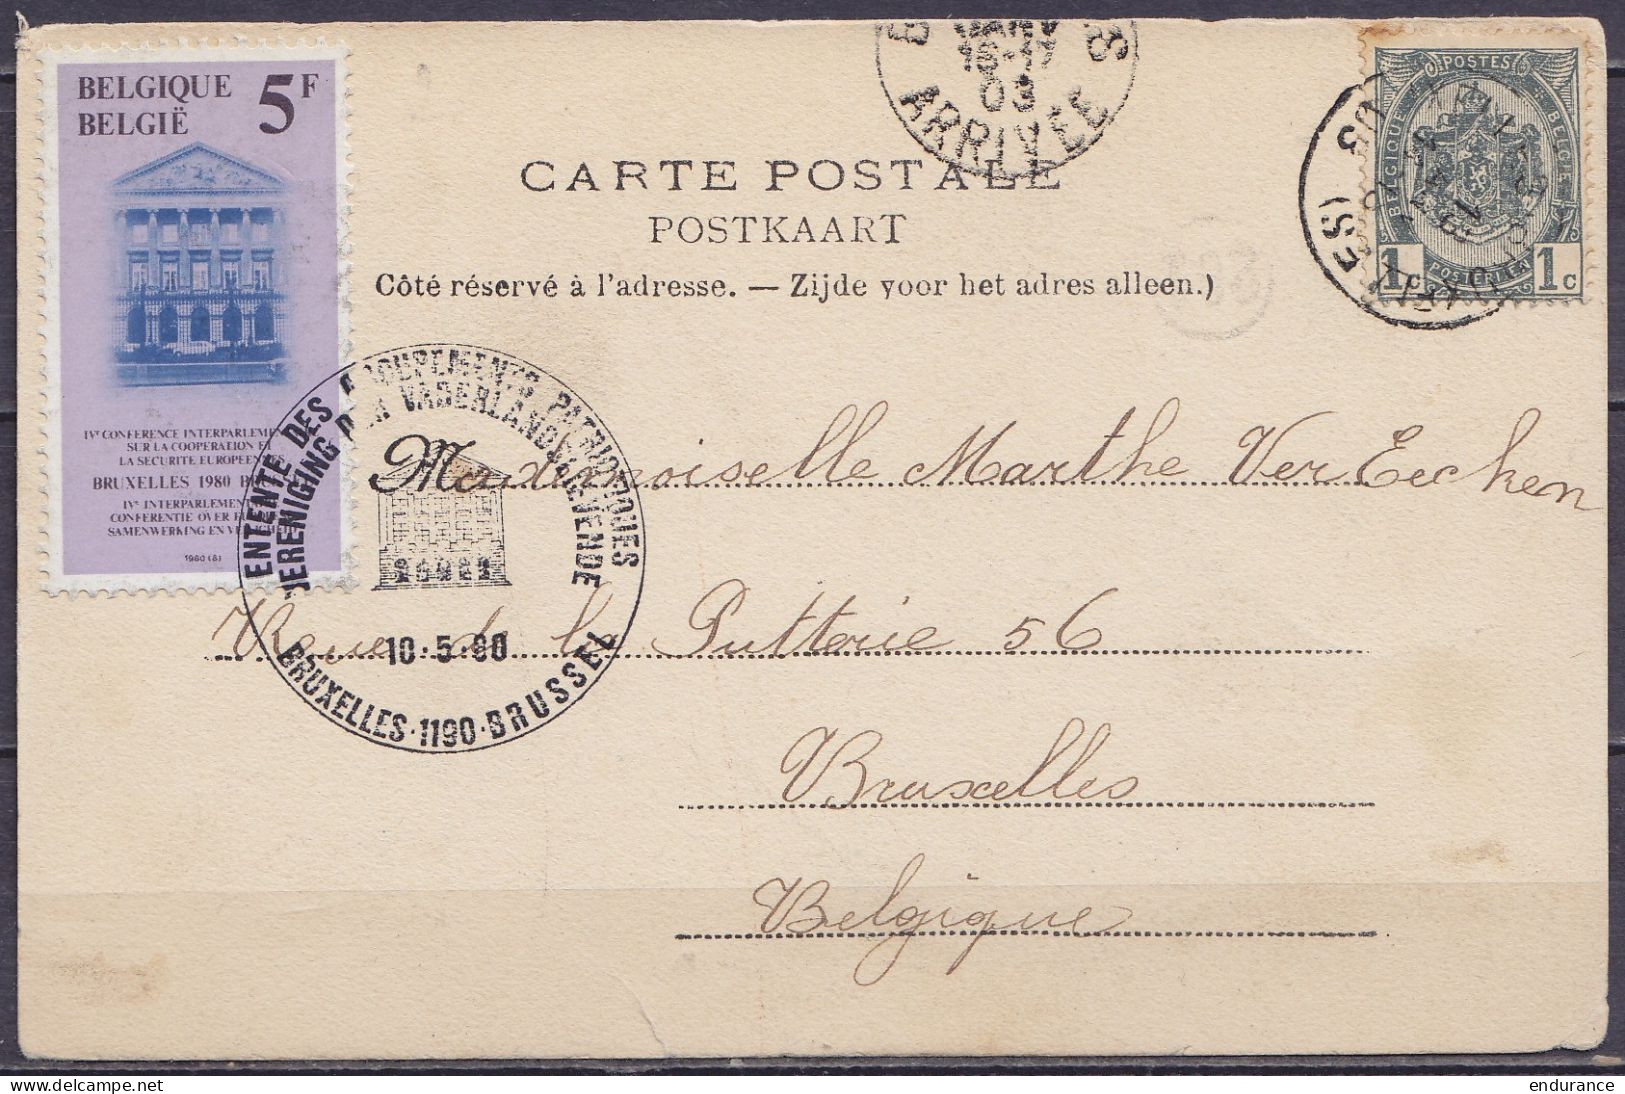 BELGIQUE 5F
BELGIË
IVe CONFERENCE INTERPARLEM
SUR LA COOPERATION ET
LA SECURITE EUROPEENNES
BRUXELLES 1980
IVe INTERPARLEMEN
CONFERENTIE OVER
SAMENWERKING EN
1980 (8)
16-17
03
ARRIVEE
CARTE POSTALE
POSTKAART
Côté réservé à l'adresse. — Zijde voor het adres alleen.)
POSTES
BELGIQUE BELGIE
1c POSTERIJEN 1c
ENTENTE DES GROUPEMENTS PATRIOTIQUES
VERENIGING DER VADERLANDSLIEVENDE
10·5·80
BRUXELLES·1190·BRUSSEL
Mademoiselle Marthe VerEecken
Rue de la Putterie 56
Bruxelles
Belgique
delcampe.net
endurance